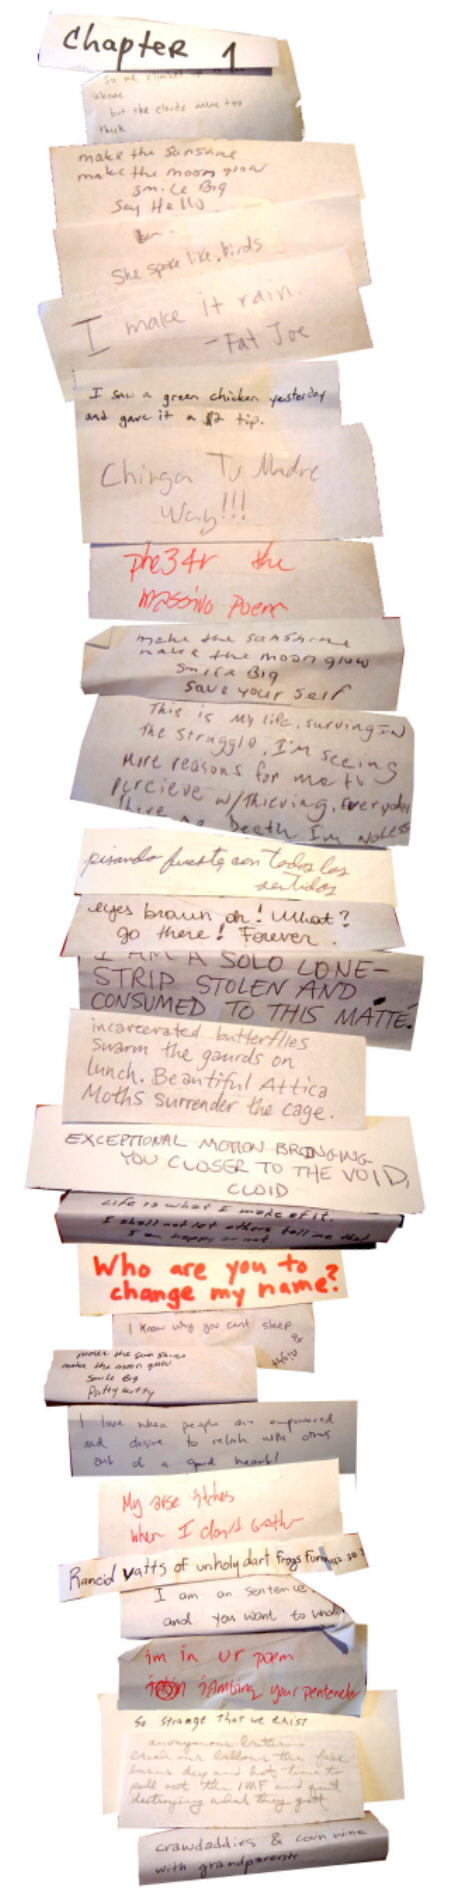 Chapter 1
So we climbed up to the
above
but the clouds were too
thick
make the sunshine
make the moon glow
smile Big
Say Hello
She spoke like birds
I make it rain.
- Fat Joe
I saw a green chicken yesterday
and gave it a $2 tip.
Chinga Tu Madre
Way!!!
phe34r the
massivo poem
make the sunshine
make the moon glow
smile Big
save your self
This is my life, surving IN
the struggle, I'm seeing
more reasons for me to
percieve w/thieving, Everyday
there no Death I'm
pisando fuerte, con todos los
sentidos
eyes brown oh! What?
go there! Forever.
I AM A SOLO LONE-
STRIP STOLEN AND
CONSUMED TO THIS MATTE.
incarcerated butterflies
swarm the gaurds on
lunch. Beautiful Attica
Moths surrender the cage.
EXCEPTIONAL MOTION BRINGING
YOU CLOSER TO THE VOID,
CLOID
Life is what I make of it.
I shall not let others tell me that
I am happy or not.
Who are you to
change my name?
I know why you cant sleep
make the sunshine
make the moon glow
Smile Big
I love when people are empowered
and desire to relate with others
out of a good heart!
My arse itches
when I don't bathe
Rancid vatts of unholy dart frogs
I am an sentence.
and you want to
im in ur poem
iambing your pentameter
So strange that we exist
anonymous
burns deep and hot time to
pull out the IMF and quit
destroying what they got
crawdaddies & corn wine
with grandparents